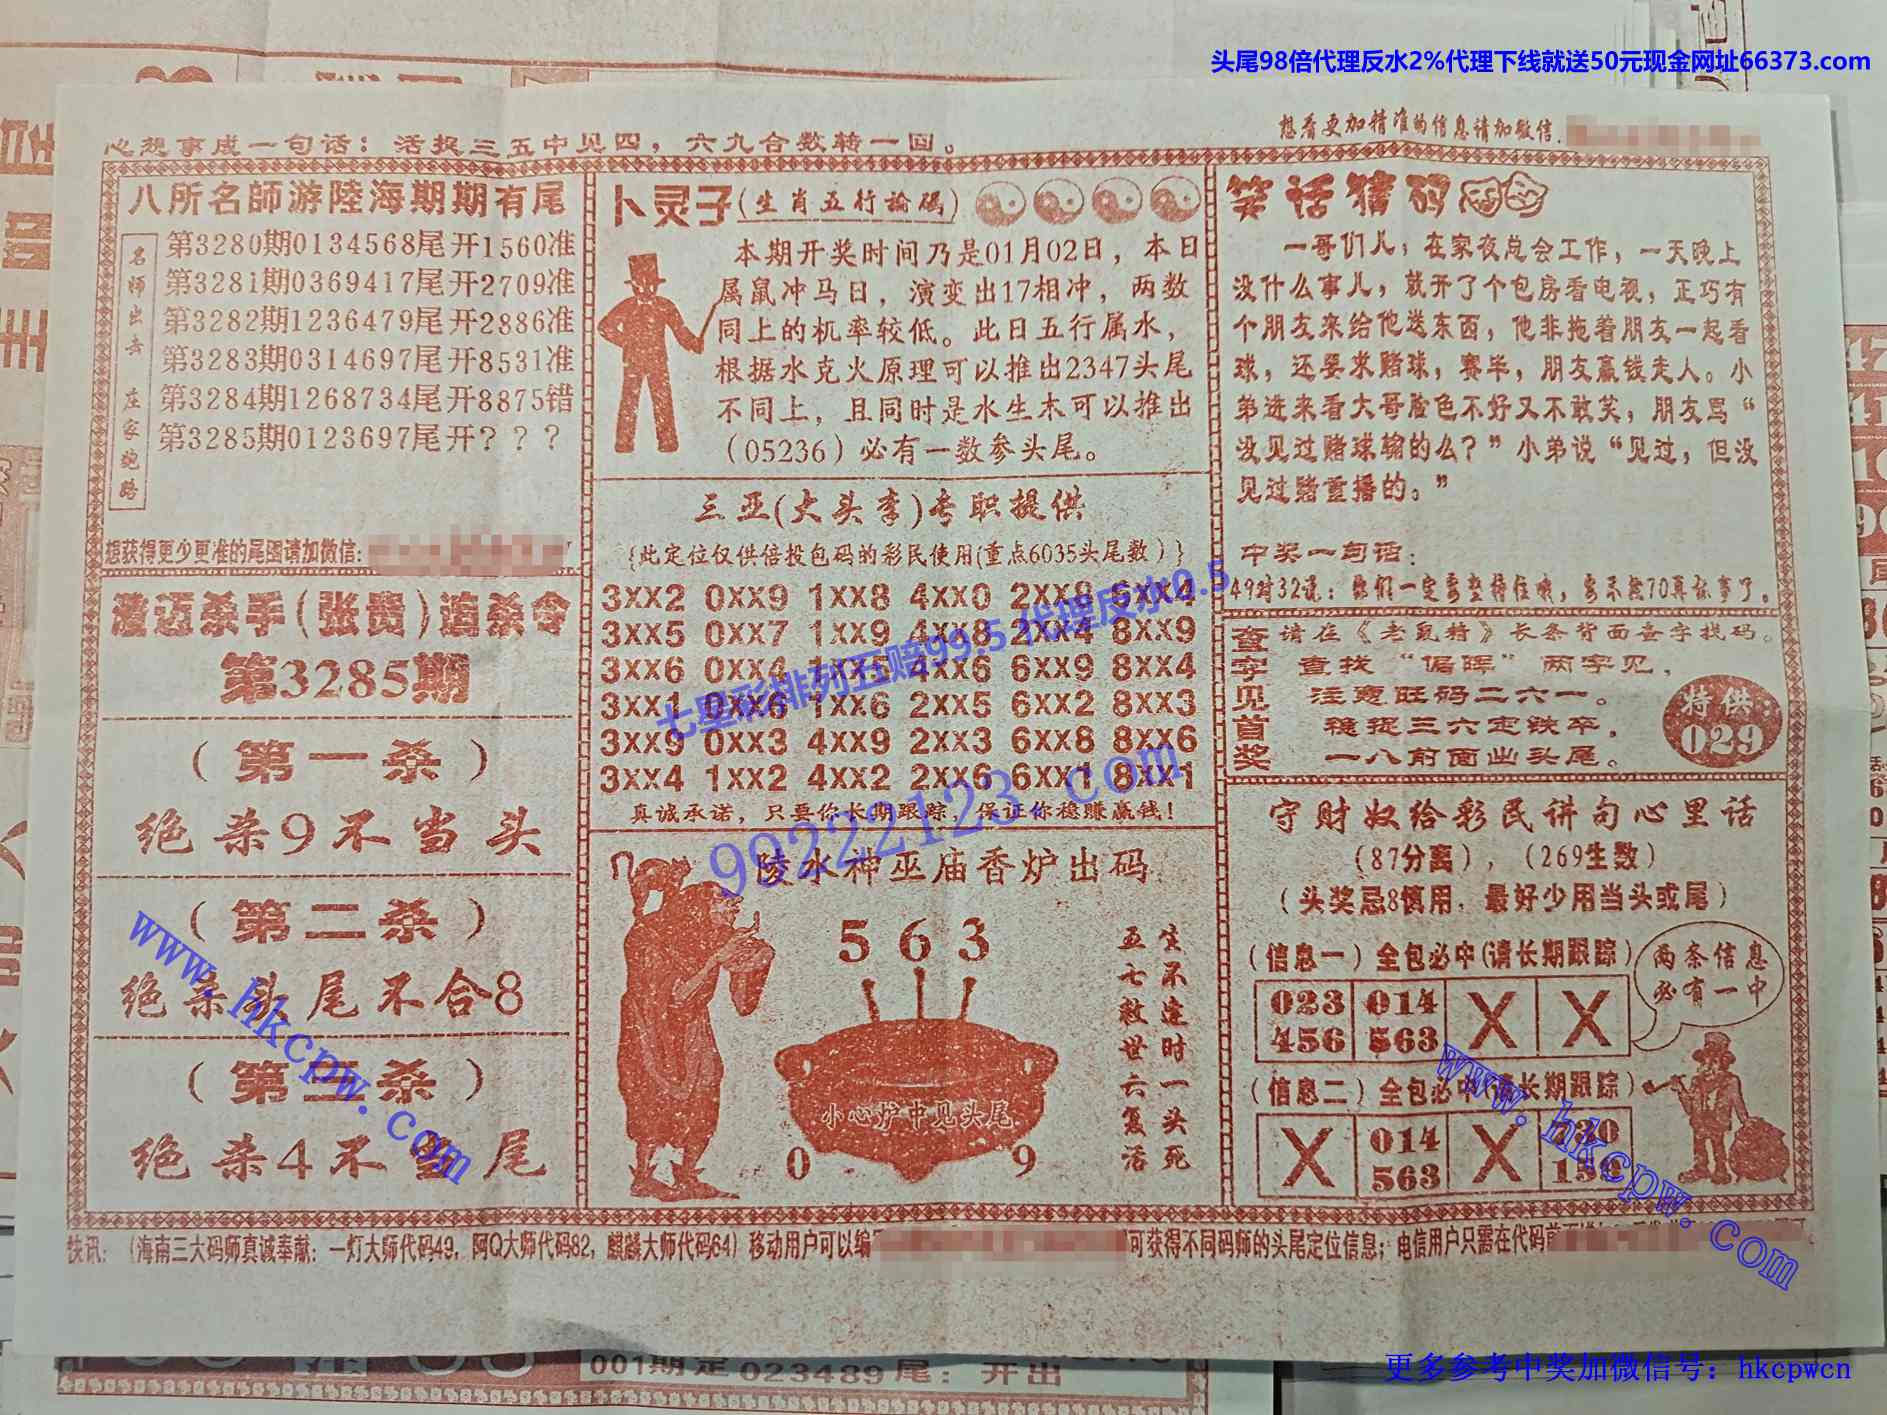 头尾98倍代理反水2%代理下线就送50元现金网址66373.com
想看更加精准的信息请加微信.
心想事成一句话：活捉三五中见四，六九合数转一回。
八所名師游陸海期期有尾
名师出去 庄家跑路
第3280期0134568尾开1560准
第3281期0369417尾开2709准
第3282期1236479尾开2886准
第3283期0314697尾开8531准
第3284期1268734尾开8875错
第3285期0123697尾开？？？
想获得更少更准的尾图请加微信:
澄迈杀手(张贵)追杀令
第3285期
（第一杀）
绝杀9不当头
（第二杀）
绝杀头尾不合8
（第三杀）
绝杀4不当尾
卜灵子(生肖五行論碼)
本期开奖时间乃是01月02日，本日
属鼠冲马日，演变出17相冲，两数
同上的机率较低。此日五行属水，
根据水克火原理可以推出2347头尾
不同上，且同时是水生木可以推出
（05236）必有一数参头尾。
三亚(大头李)专职提供
{此定位仅供倍投包码的彩民使用(重点6035头尾数)}
3XX2 0XX9 1XX8 4XX0 2XX8 6XX4
3XX5 0XX7 1XX9 4XX8 2XX4 8XX9
3XX6 0XX4 1XX5 4XX6 6XX9 8XX4
3XX1 0XX6 1XX6 2XX5 6XX2 8XX3
3XX9 0XX3 4XX9 2XX3 6XX8 8XX6
3XX4 1XX2 4XX2 2XX6 6XX1 8XX1
真诚承诺，只要你长期跟踪，保证你稳赚赢钱！
七星彩排列五赔99.5 代理反水0.5
99222123.com
陵水神巫庙香炉出码
5 6 3
生不逢时一头死
五七救世六复活
小心炉中见头尾
0 9
笑话猜码
一哥们儿，在家夜总会工作，一天晚上
没什么事儿，就开了个包房看电视，正巧有
个朋友来给他送东西，他非拖着朋友一起看
球，还要求赌球，赛毕，朋友赢钱走人。小
弟进来看大哥脸色不好又不敢笑，朋友骂“
没见过赌球输的么？”小弟说“见过，但没
见过赌重播的。”
中奖一句话：
49对32说：我们一定要坚持住哦，要不然70再坏事了。
查字见首奖
请在《老鼠精》长条背面查字找码。
查找“偏晖”两字见，
注意旺码二六一。
稳捉三六定铁卒，
一八前面出头尾。
特供：
029
守财奴给彩民讲句心里话
（87分离），（269生数）
（头奖忌8慎用，最好少用当头或尾）
（信息一）全包必中(请长期跟踪)
两条信息
必有一中
023 014 X X
456 563
（信息二）全包必中(请长期跟踪)
X 014 X
563
快讯：（海南三大码师真诚奉献：一灯大师代码49，阿Q大师代码82，麒麟大师代码64）移动用户可以编
可获得不同码师的头尾定位信息；电信用户只需在代码前
www.hkcpw.com
www.hkcpw.com
001期定023489尾：开出
更多参考中奖加微信号：hkcpwcn